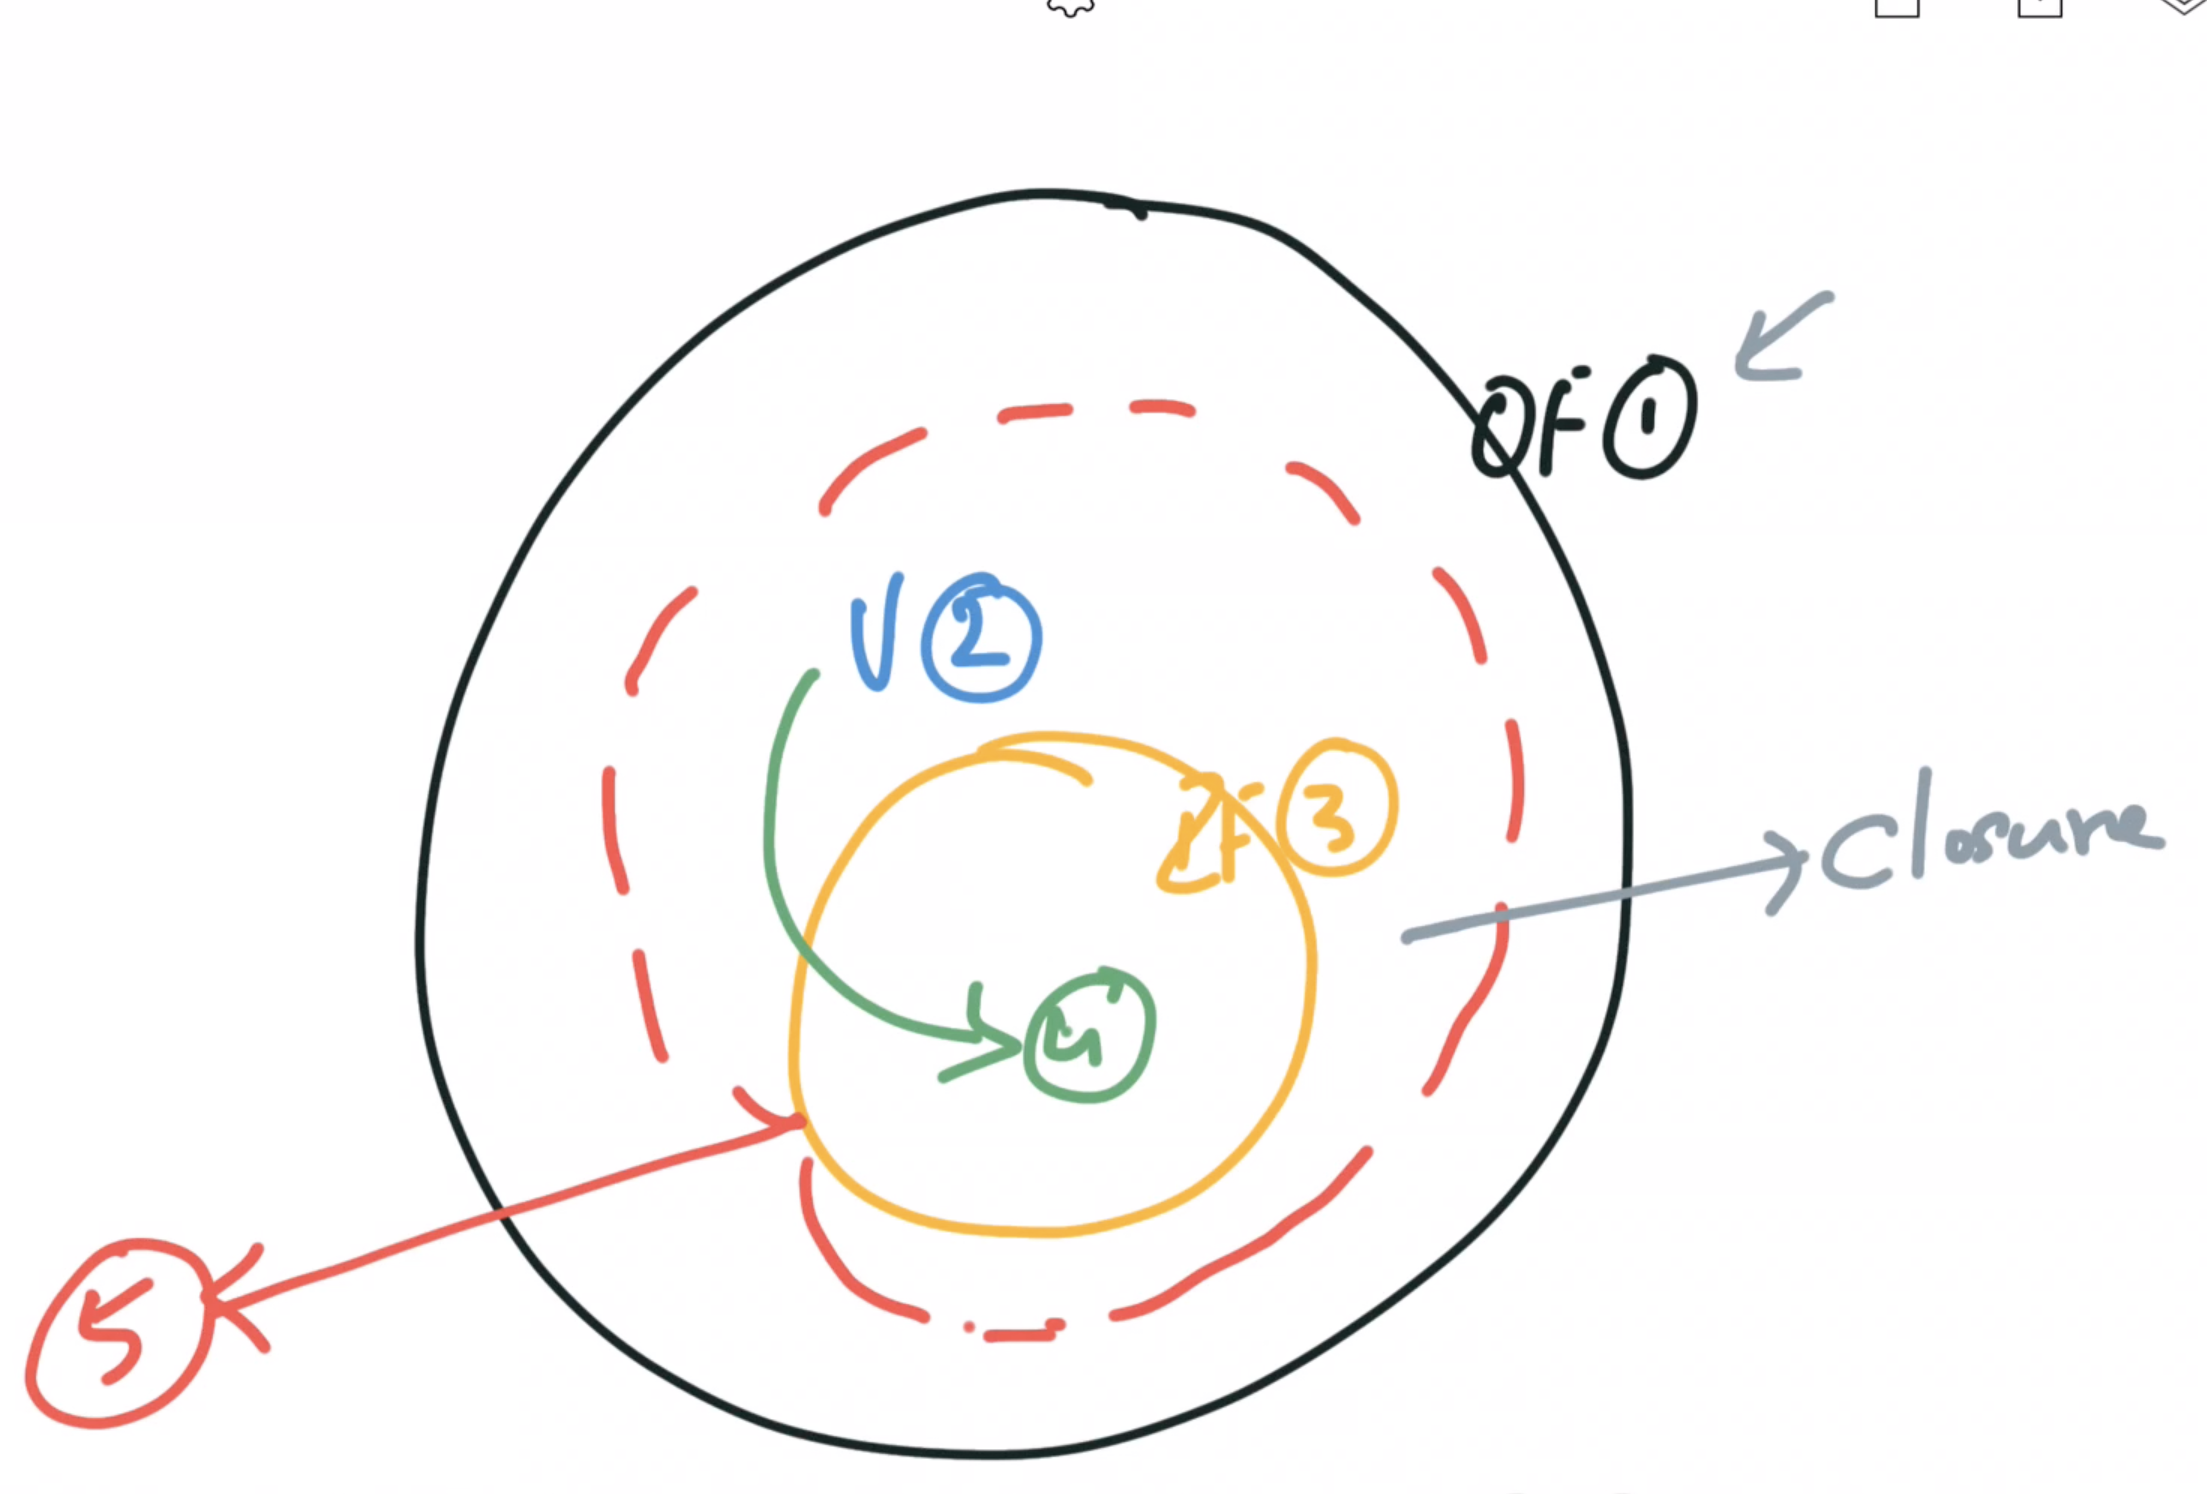 OF ①
V ②
IF ③
closure
④
⑤